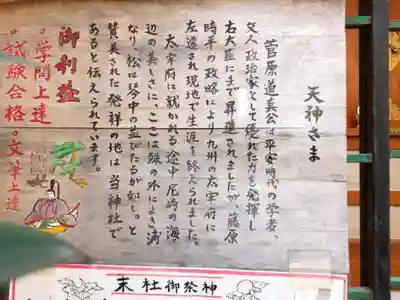 天神さま
菅原道真公は平安時代の学者、
文人政治家として優れた力を発揮し
右大臣にまで昇進されましたが、藤原
時平の政略により九州の太宰府に
左遷され現地で生涯を終えられました。
太宰府に就かれる途中尼崎の海
辺の美しさに、ここは殊の外によき浦
なり、松は琴の並びたるが如し。と
賛美された発祥の地は当神社で
あると伝えられています。
御利益
・学問上達
・試験合格・文筆上達
末社御祭神